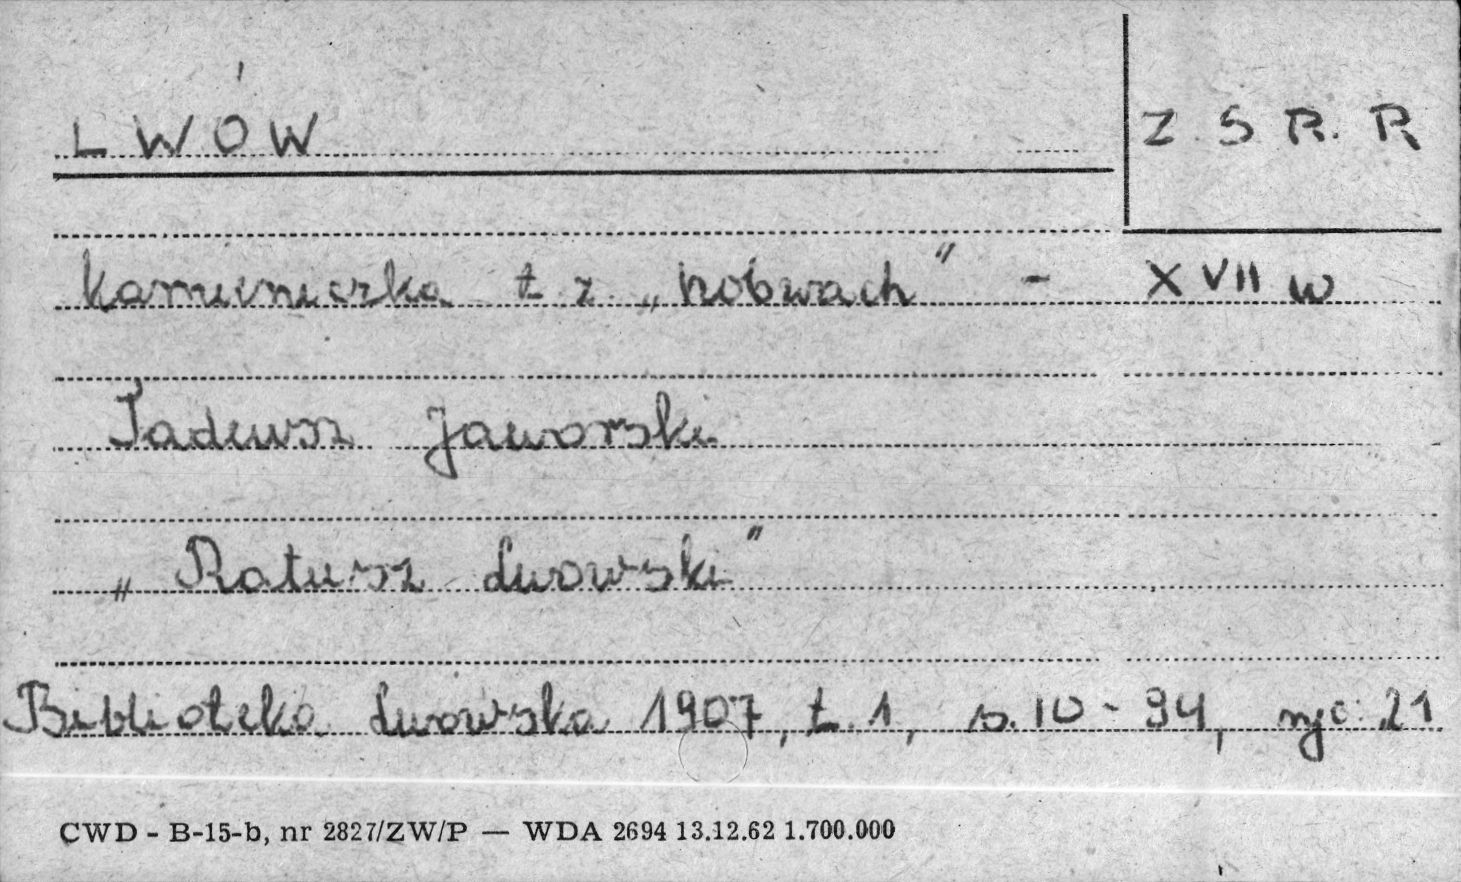 LWÓW
Z S R. R
kamieniczka t z. „
" - XVII w
Tadeusz Jaworski
„Ratusz Lwowski"
Biblioteka Lwowska 1907, t. 1, s. 10 - 94, ryc. 21
CWD - B-15-b, nr 2827/ZW/P — WDA 2694 13.12.62 1.700.000